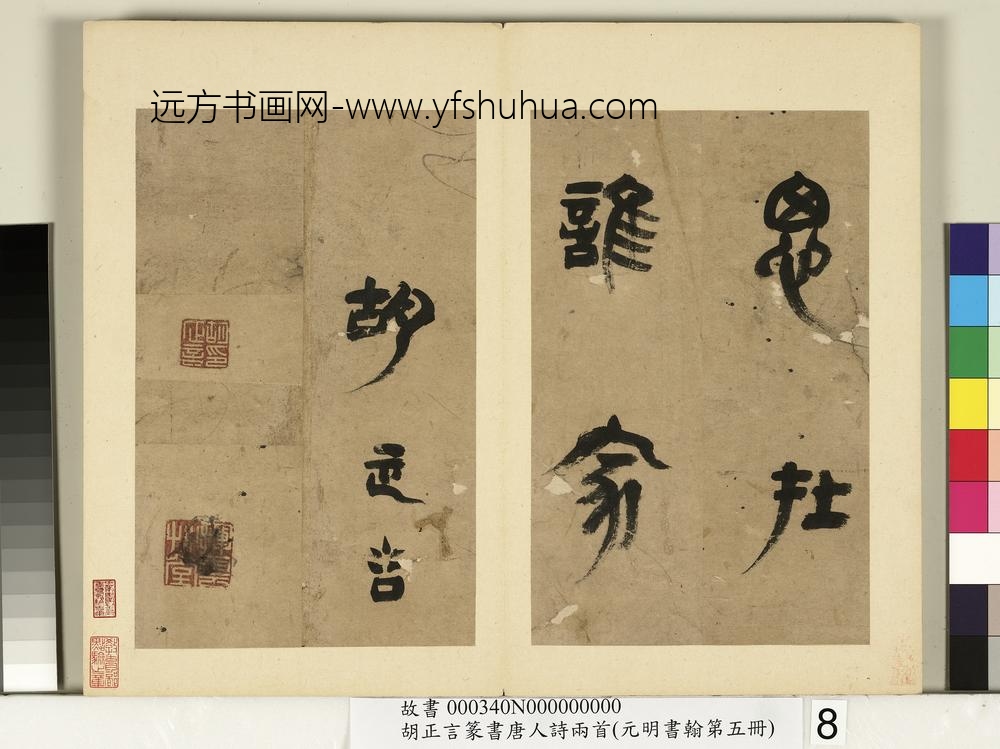 远方书画网-www.yfshuhua.com
思在
誰家
胡正言
胡印正言
故書 000340N000000000
胡正言篆書唐人詩兩首(元明書翰第五冊)
8